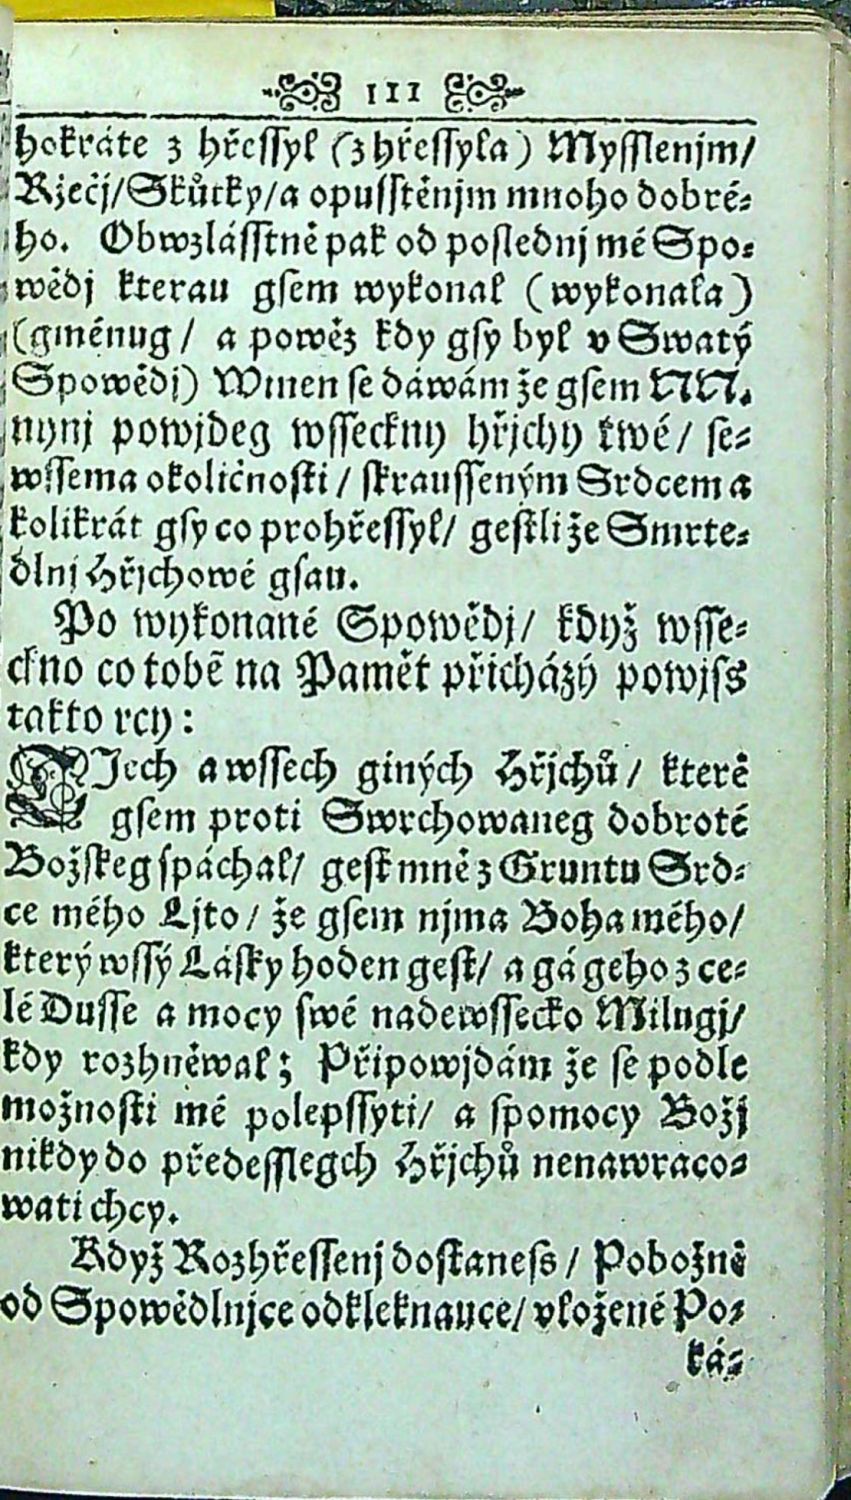 111
hokráte z hřessyl (zhřessyla) Mysslenjm/
Rječj/Skůtky/a opusstěnjm mnoho dobré-
ho. Obwzlásstně pak od poslednj mé Spo-
wědj kterau gsem wykonal (wykonala)
(gměnug/ a powěz kdy gsy byl v Swatý
Spowědj) Winen se dáwám že gsem NN.
nynj powjdeg wsseckny hřjchy twé/ se-
wssema okoličnosti/ skrausseným Srdcem a
kolikrát gsy co prohřessyl/ gestli že Smrte-
dlnj Hřjchowé gsau.
Po wykonané Spowědj/ když wsse-
ckno co tobě na Pamět přicházý powjss
takto rcy:
TJech a wssech giných Hřjchů/ kterě
gsem proti Swrchowaneg dobrotě
Božskeg spáchal/ gest mně z Gruntu Srd-
ce mého Ljto/ že gsem njma Boha mého/
který wssý Lásky hoden gest/ a gá geho z ce-
lé Dusse a mocy swé nadewssecko Milugj/
kdy rozhněwal; Připowjdám že se podle
možnosti mé polepssyti/ a spomocy Božj
nikdy do předesslegch Hřjchů nenawraco-
wati chcy.
Když Rozhřessenj dostaness/ Pobožně
od Spowědlnjce odkleknauce/ vložené Po-
ká-